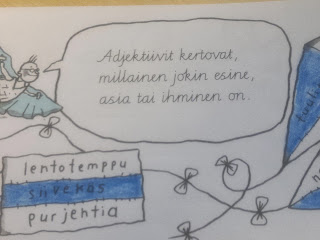 Adjektiivit kertovat,
millainen jokin esine,
asia tai ihminen on.
lentotemppu
siivekäs
purjehtia